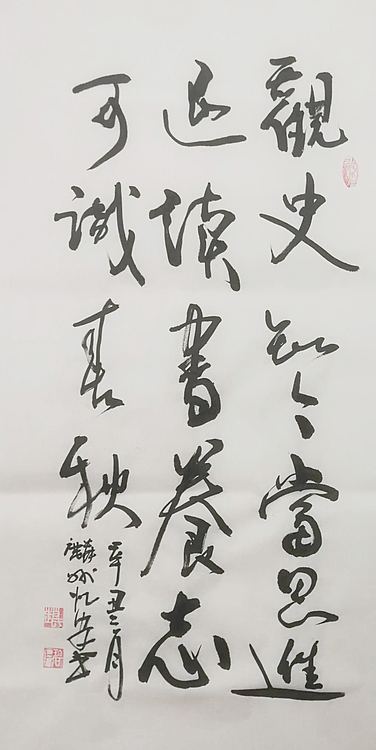 觀史知今當思進
退讀書養志
可識春秋
辛丑三月